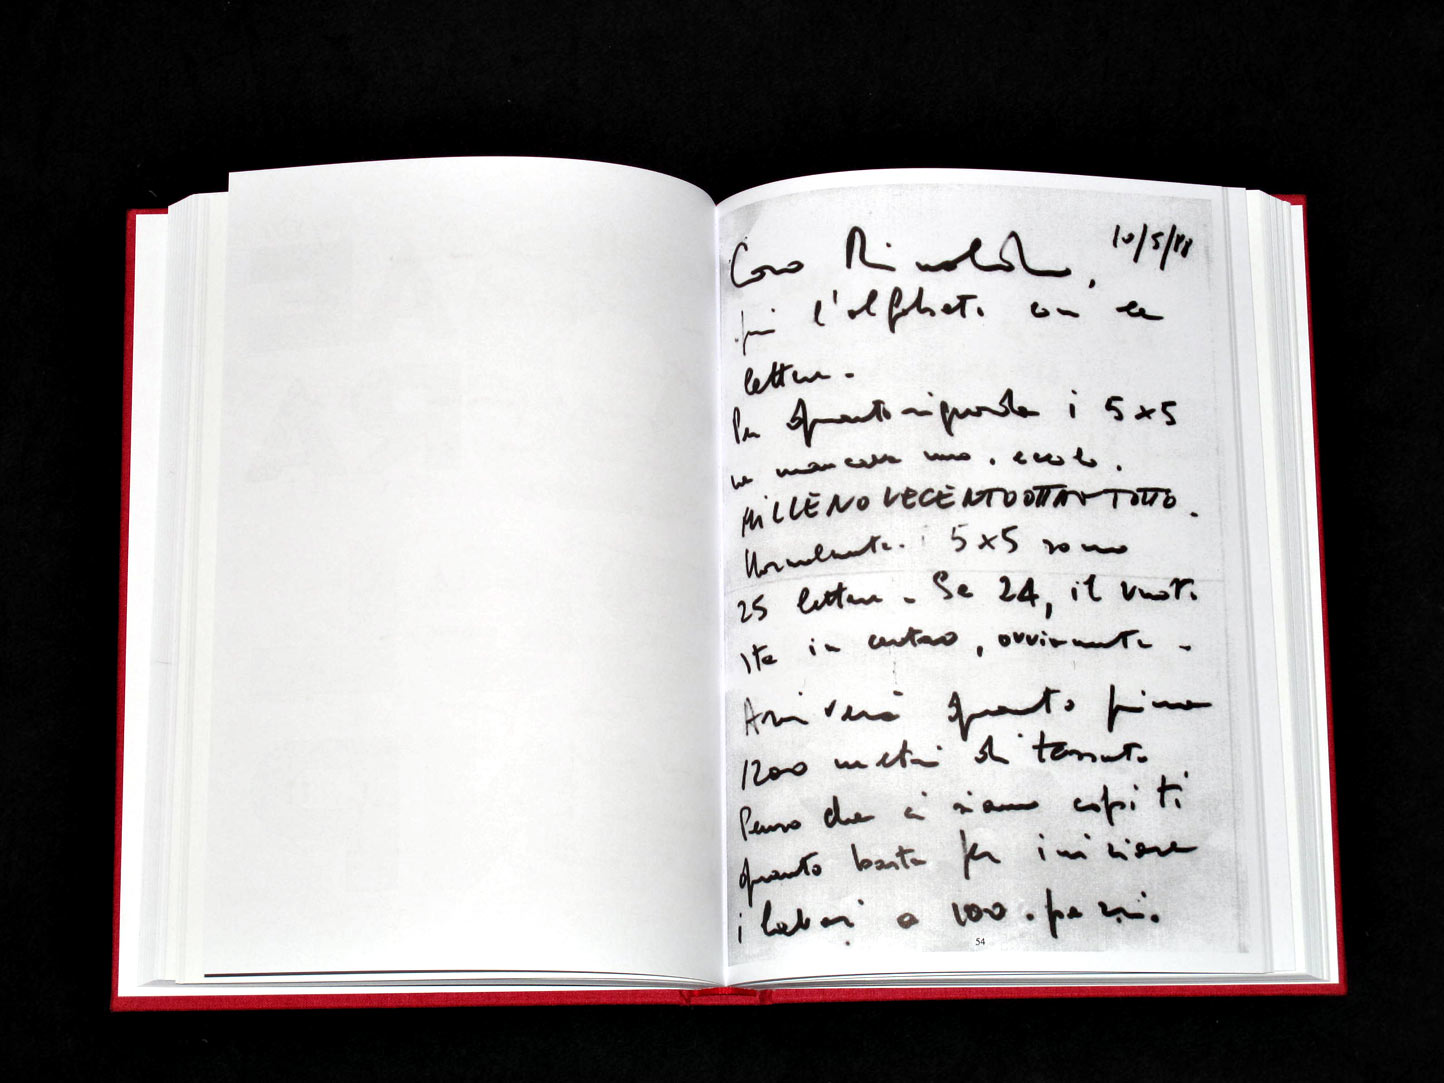 10/5/88
Caro Rinaldo,
qui l'alfabeto con le
lettere.
Per quanto riguarda i 5x5
ne mancava uno. eccolo.
MILLENOVECENTOOTTANTOTTO.
Normalmente i 5x5 sono
25 lettere. Se 24, il vuoto
sta in centro, ovviamente.
Arriverà quanto prima
1200 metri di tessuto
Penso che ci siamo capiti
quanto basta per iniziare
i lavori a 100. pezzi.
54